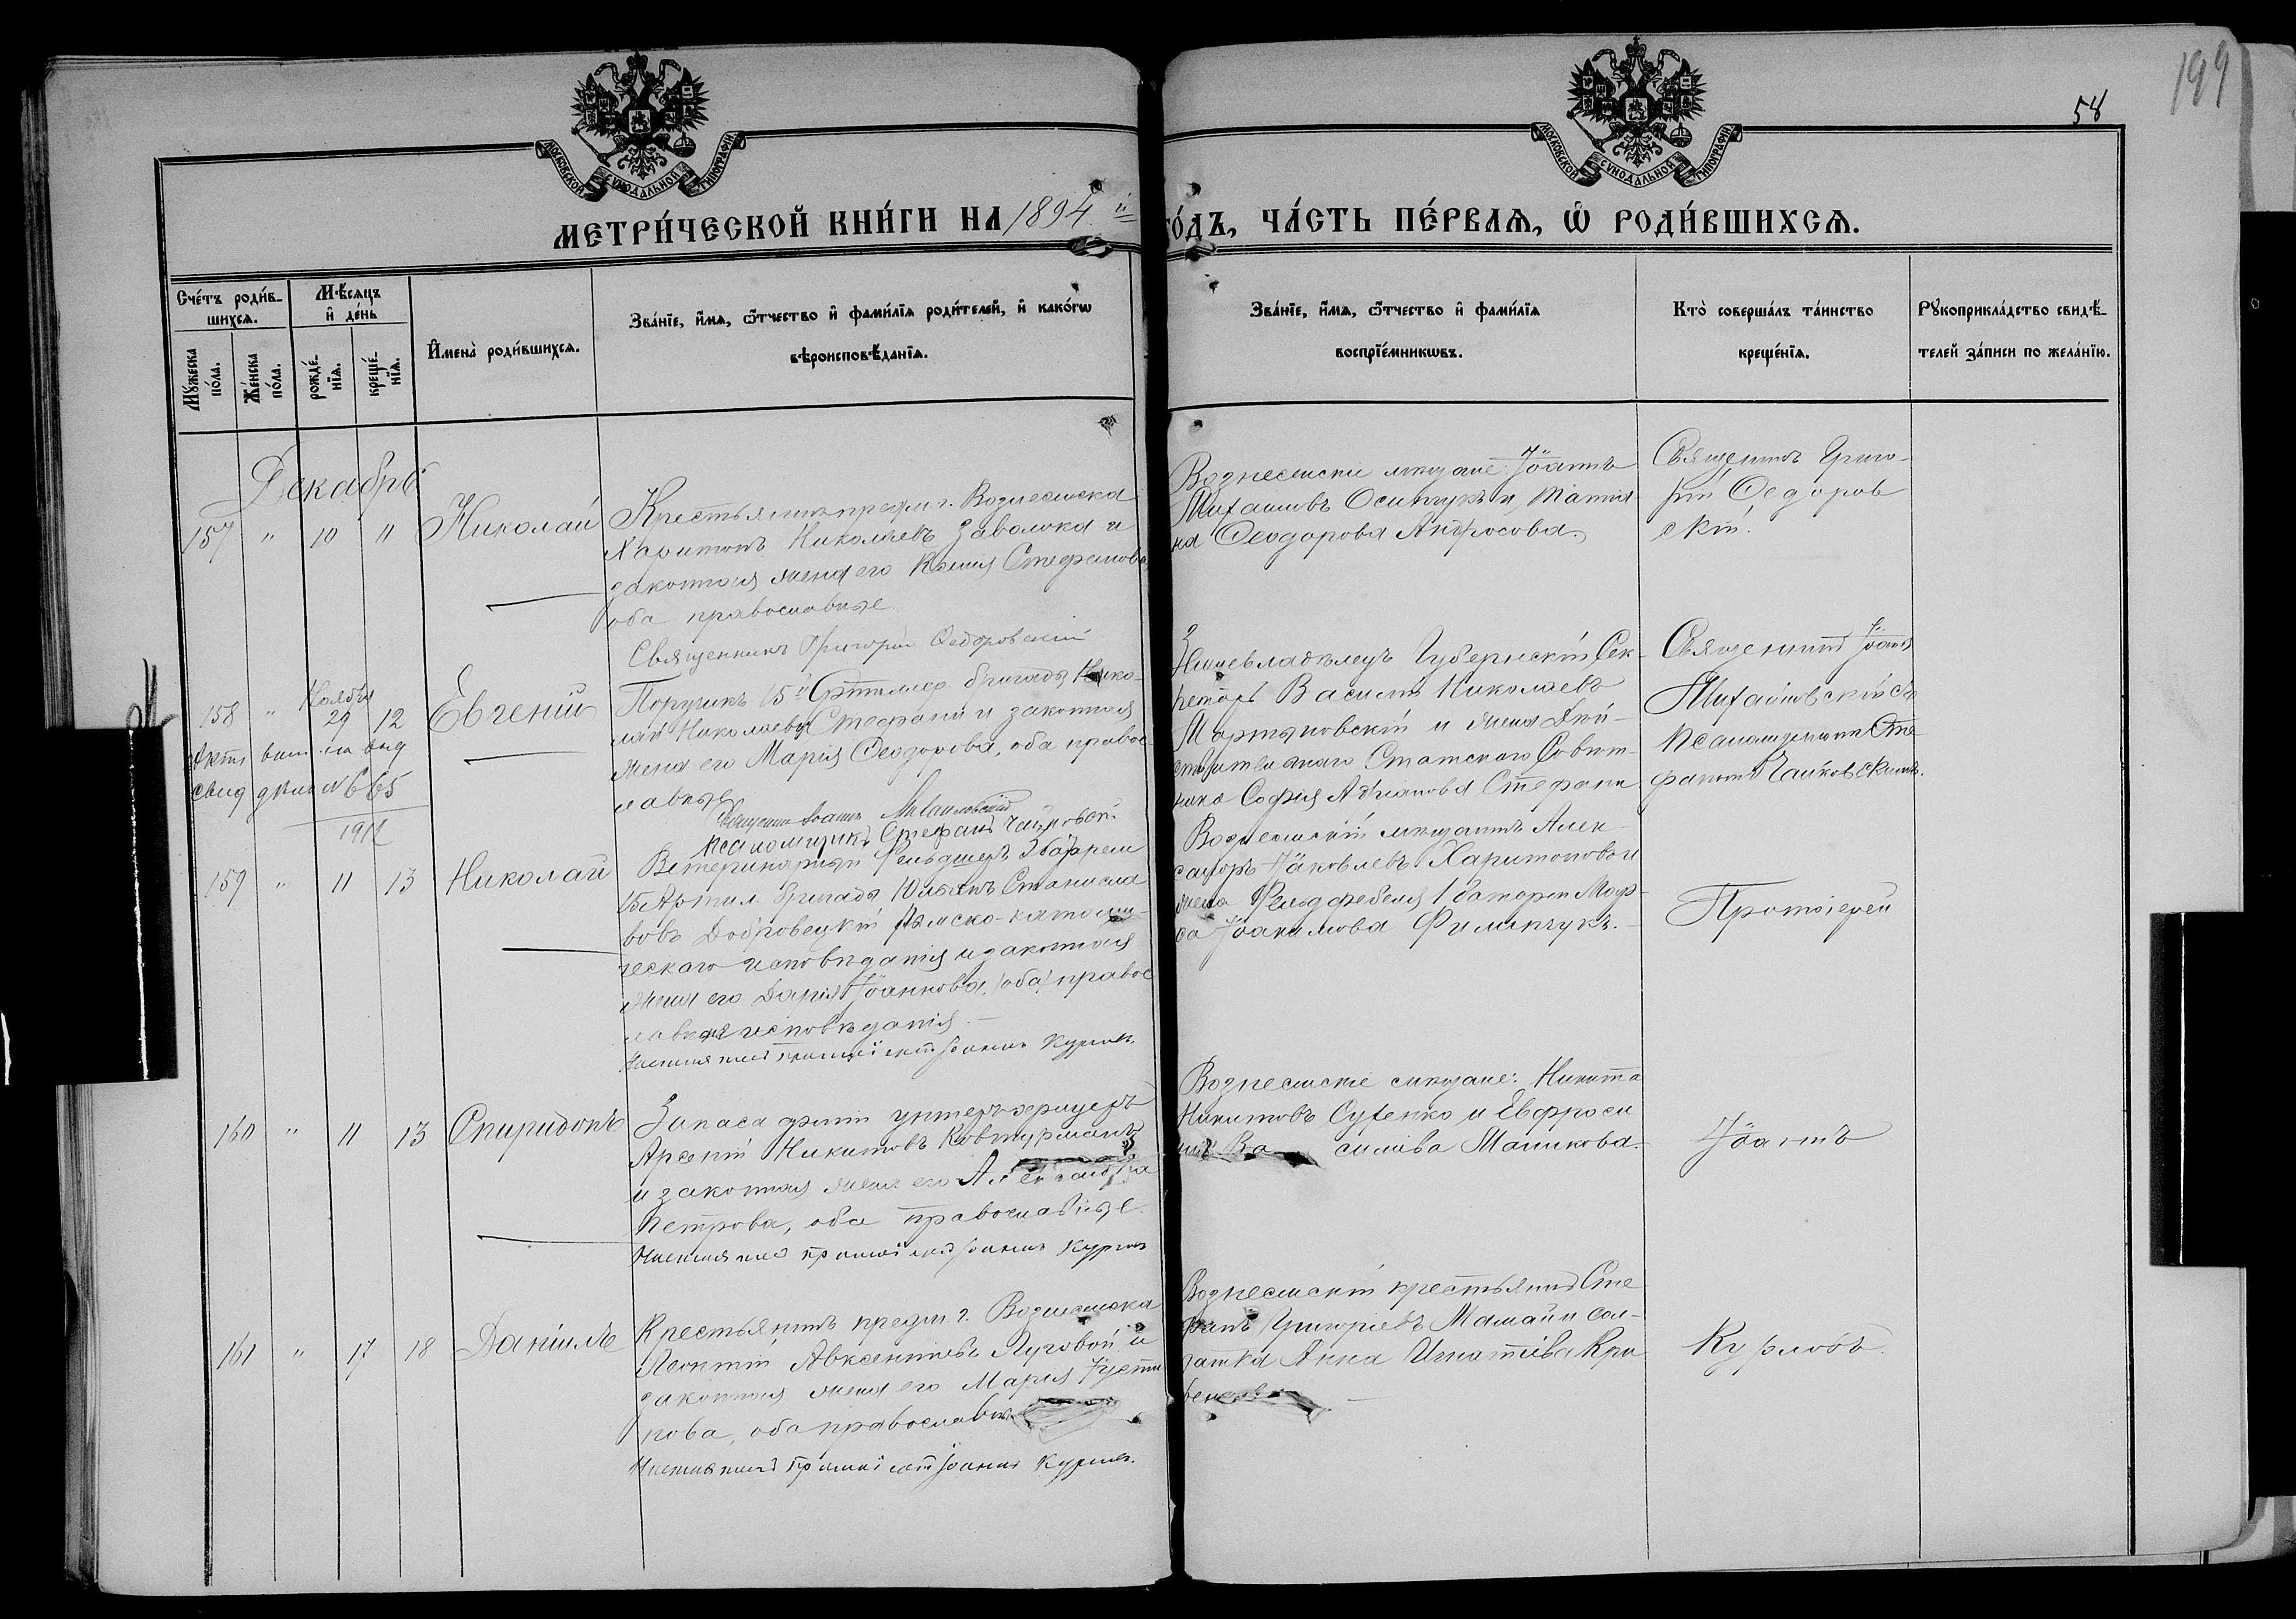 199
58
МОСКОВСКОЙ СѴНОДАЛЬНОЙ ТИПОГРАФІИ
МОСКОВСКОЙ СѴНОДАЛЬНОЙ ТИПОГРАФІИ
МЕТРИ́ЧЕСКОЙ КНИ́ГИ НА 1894 й
ГО́ДЪ, ЧА́СТЬ ПЕ́РВАѦ, Ѡ РОДИ́ВШИХСѦ.
Сче́тъ роди́в-
шихсѧ.
Мѣ́сѧцъ
и де́нь
Мꙋ́жеска
по́ла.
Же́нска
по́ла.
рожде́-
нїѧ.
креще́-
нїѧ.
Имена̀ роди́вшихсѧ.
Зва́нїе, и́мѧ, ѻ́тчество и фами́лїѧ роди́телей, и како́гѡ
вѣроисповѣ́данїѧ.
Зва́нїе, и́мѧ, ѻ́тчество и фами́лїѧ
воспрїе́мникѡвъ.
Кто̀ соверша́лъ та́инство
креще́нїѧ.
Рꙋкоприкла́дство свидѣ́-
телей за́писи по жела́нїю.
Декабрь
157 " 10 11 Николай
Крестьянинъ предм. г. Вознесенска
Харитонъ Николаевъ Заволока и
законная жена его Ксенія Стефанова
оба православные.
Священникъ Григорій Ѳедоровскій
Вознесенскіе мѣщане: Іоаннъ
Михаиловъ Осипукъ и Татіа-
на Ѳеодорова Андросова.
Священникъ Григо-
рій Ѳедоров
скій.
158 " Ноября 29 12 Евгеній
свид № 665
1912
Поручикъ 15й Артиллер. бригады Нико-
лай Николаевъ Стефани и законная
жена его Марія Ѳеодорова, оба правос-
лавные
Священникъ Іоаннъ Михайловскій
Псаломщикъ Стефанъ Чайковскій
Землевладѣлецъ Губернскій Сек-
ретарь Василій Николаевъ
Мартыновскій и жена Дѣй-
ствительнаго Статскаго Совѣт-
ника Софія Стефани
Священникъ Іоаннъ
Михайловскій съ
псаломщикомъ Сте-
фаномъ Чайковскимъ.
159 " 11 13 Николай
Ветеринарный Фельдшеръ 3 батареи
15 Артил. бригады Станисла
вовъ Добровецкій Римско-католи-
ческаго исповѣданія и законная
жена его Дарія Іоаннова, (оба) правос
лавнаго исповѣданія.
Настоятель протоіерей Іоаннъ Курловъ
Вознесенскій мѣщанинъ Алек-
сандръ Іаковлевъ Харитоновъ и
жена Фельдфебеля 1 батареи Мар-
Іоакимова Филипчукъ.
Протоіерей
160 " 11 13 Спиридонъ
Запаса арміи унтеръ-офицеръ
Арсеній Никитовъ Ковтурманъ
и законная жена его Александра
Петрова, оба православные.
Настоятель протоіерей Іоаннъ Курловъ
Вознесенскіе мѣщане: Никита
Никитовъ Сутенко и Евфроси
нія Ва силіева Маликова.
Іоаннъ
161 " 17 18 Даніилъ
Крестьянинъ предм. г. Вознесенска
Леонтій Авксентіевъ Луговой и
законная жена его Марія Іусти
нова, оба православные
Настоятель протоіерей Іоаннъ Курловъ
Вознесенскій крестьянинъ Сте
фанъ Григоріевъ Мамай и сол-
датка Анна Игнатіева Кри
Курловъ.